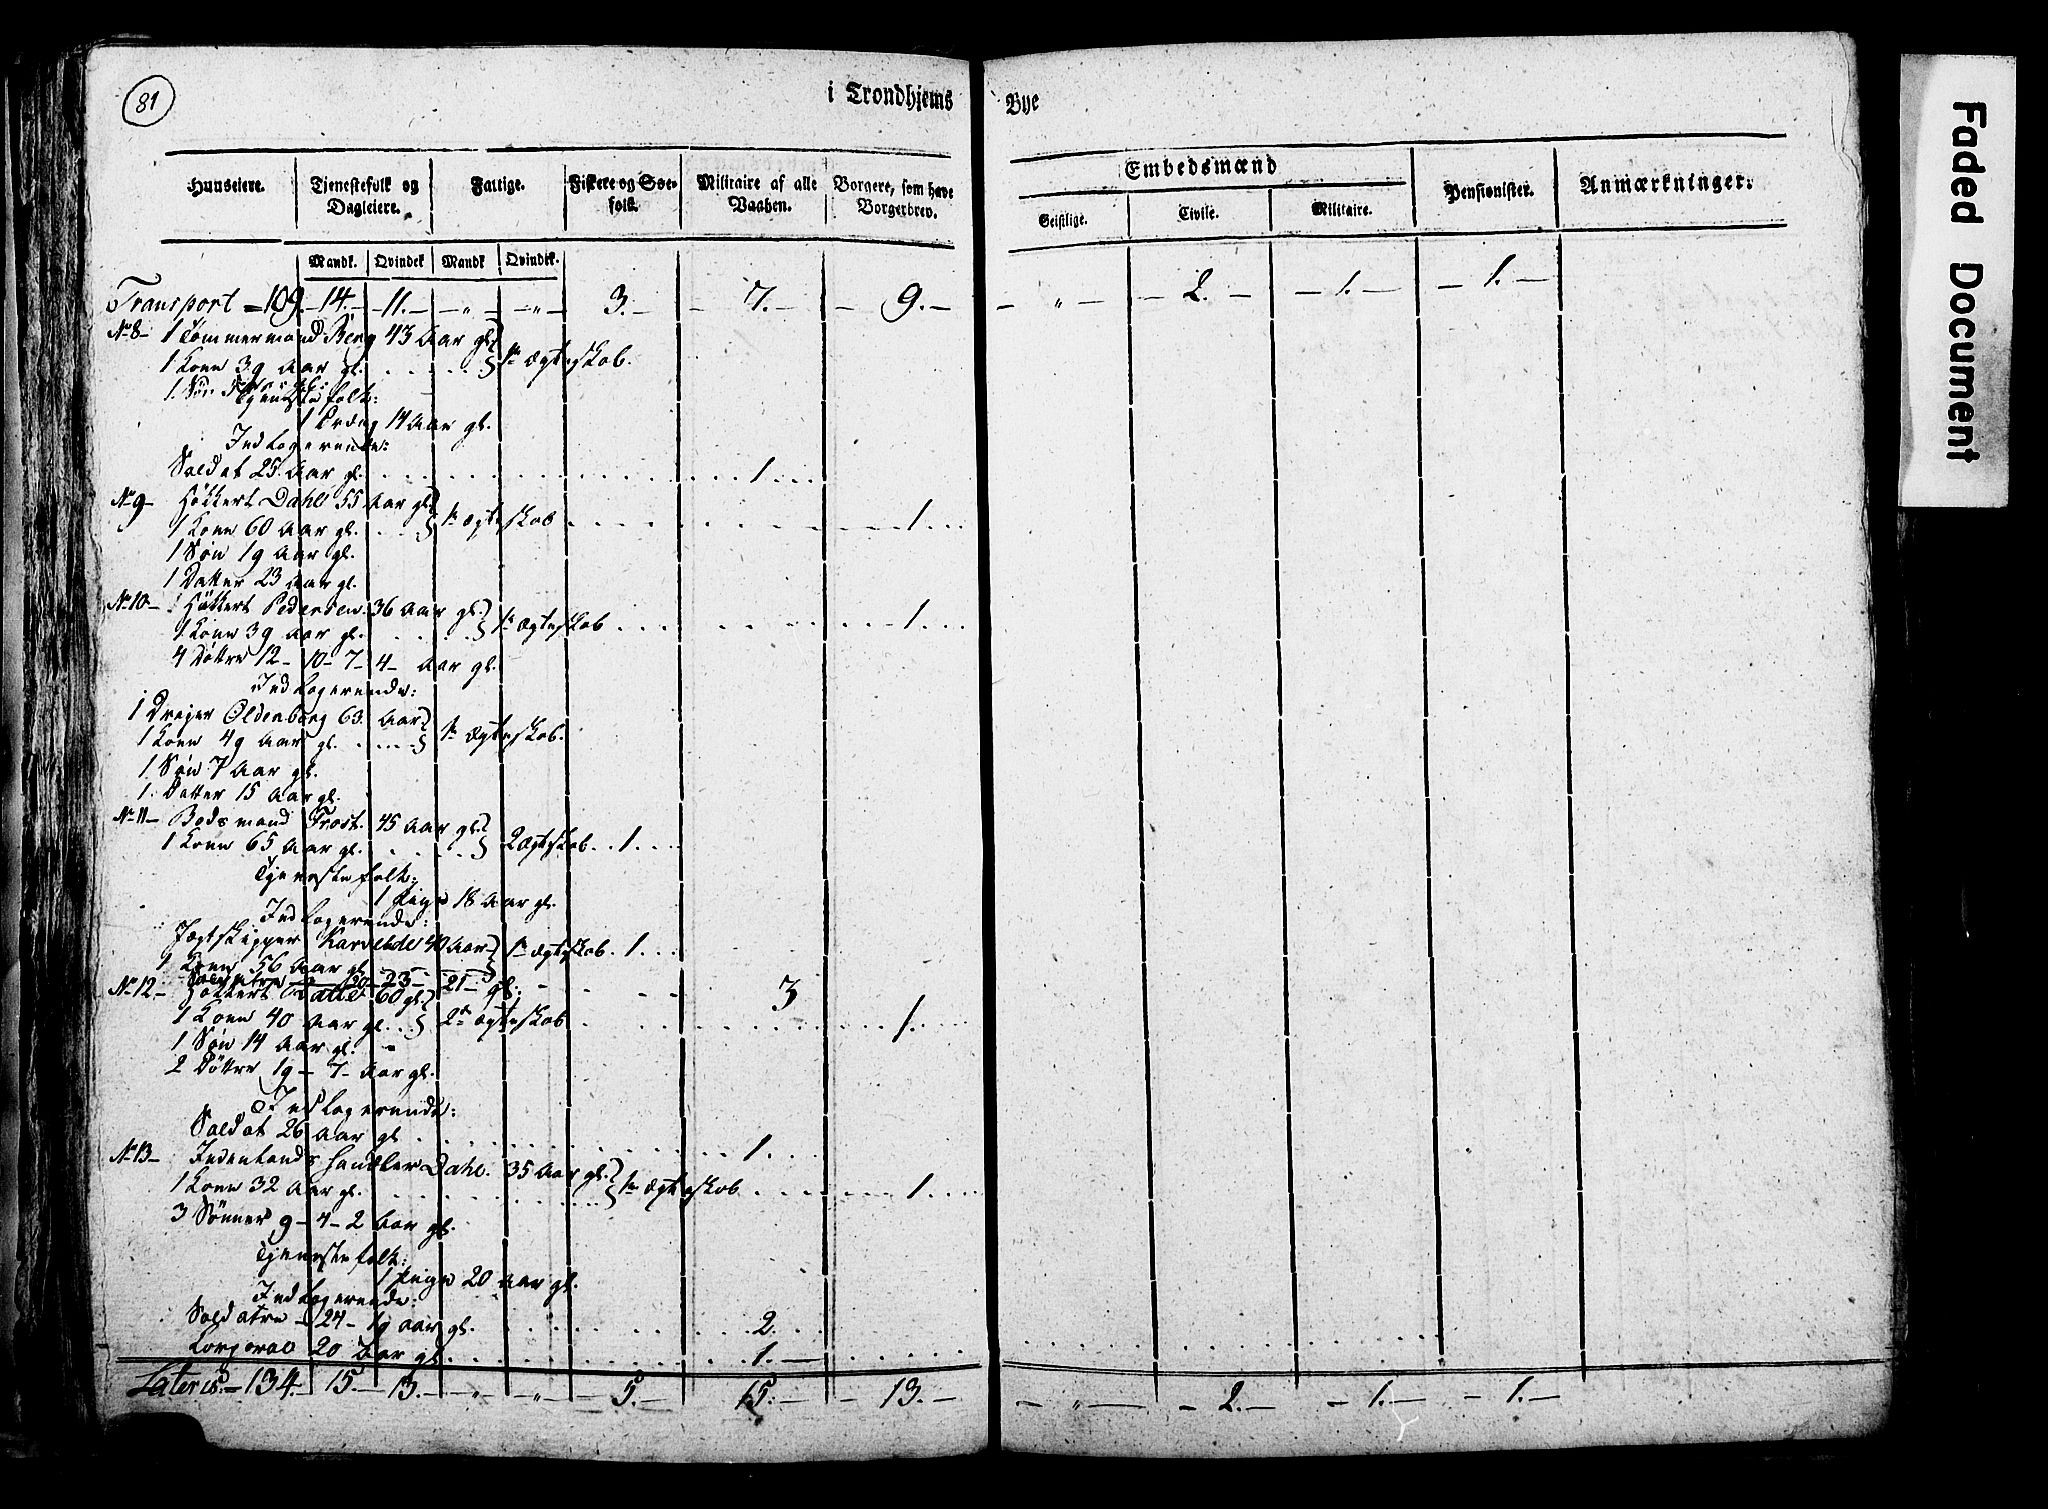 81
i Trondhjems Bye
Huuseiere. Tjenestefolk og Dagleiere. Fattige. Fiskere og Søefolk. Militaire af alle Vaaben. Borgere, som have Borgerbrev. Embedsmænd Pensionister. Anmærkninger.
Geistlige. Civile. Militaire.
Mandk. Qvindek Mandk Qvindek.
Transport = 109.- 14.- 11.- - „ - - „ - 3.- - 7.- - 9.- - „ - - 2.- - 1.- - 1.-
No 8- 1 Tømmermand Berg 43 Aar gl.
1 Kone 39 Aar gl. . . . . . 1te Ægteskab.
1. Søn
Tjenestefolk:
1 Dreng 14 Aar gl.
Indlogerende:
Soldat 25. Aar gl. . . . 1. . . .
No 9- Høkkert Dahl 55 Aar gl.
1 Kone 60 Aar gl. . . . 1te Ægteskab . . . . 1. . . .
1 Søn 19 Aar gl.
1 Datter 23 Aar gl.
No 10- 1 Høkkert Pedersen. 36 Aar gl.
1 Kone 39 Aar gl. . . . . 1te Ægteskab . . . . 1. . . .
4 Døttre 12- 10- 7- 4- Aar gl.
Indlogerende:
1 Drejer Oldenborg 63. Aar
1 Kone 49 Aar gl. . . . . . 1te Ægteskab.
1. Søn 7 Aar gl.
1. Datter 15 Aar gl.
No 11- Bodsmand Frost. 45 Aar gl.
1 Kone 65 Aar gl. . . . . 2 Ægteskab. . 1. . . .
Tjenestefolk:
1 Pige 18 Aar gl.
Indlogerende:
Jægtskipper 40 Aar 1te Ægteskab. 1. . .
1 Kone 56 Aar gl.
Soldatre - 20- 23- 21- gl. - - - 3
No 12- Høkkert 60 gl.
1 Kone 40 Aar gl. . . 2det Ægteskab . . . . 1. . . .
1 Søn 14 Aar gl. -
2 Døttre 19- 7- Aar gl.
Indlogerende:
Soldat 26 Aar gl. . . . 1. . . .
No 13- Indenlands handler Dahl. 35 Aar gl.
1 Kone 32 Aar gl. . . . 1te Ægteskab . . . . 1. . . .
3 Sønner 9- 4- 2 Aar gl.
Tjenestefolk:
1 Pige 20 Aar gl.
Indlogerende:
Soldatre - 24- 19 Aar gl. . . . 2. . .
Corporal 20 Aar gl. . . . 1.-
Lateris.- 134.- 15.- 13.- - „ - - „ - - 5.- 15.- - 13.- - „ - - 2.- - 1.- - 1.-
Faded Document